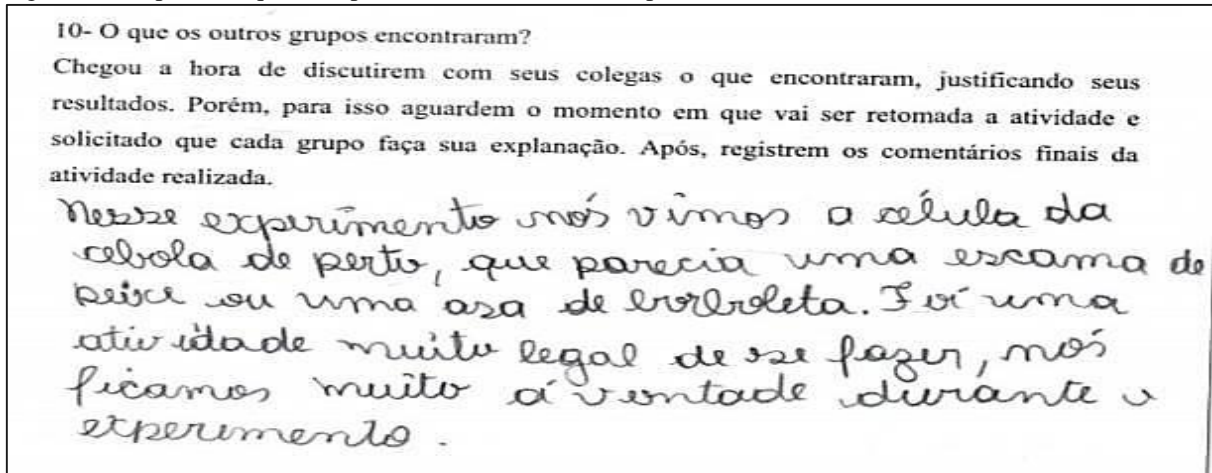 10- O que os outros grupos encontraram?
Chegou a hora de discutirem com seus colegas o que encontraram, justificando seus
resultados. Porém, para isso aguardem o momento em que vai ser retomada a atividade e
solicitado que cada grupo faça sua explanação. Após, registrem os comentários finais da
atividade realizada.
Nesse experimento nós vimos a célula da
cebola de perto, que parecia uma escama de
peixe ou uma asa de borboleta. Foi uma
atividade muito legal de se fazer, nós
ficamos muito á vontade durante o
experimento.